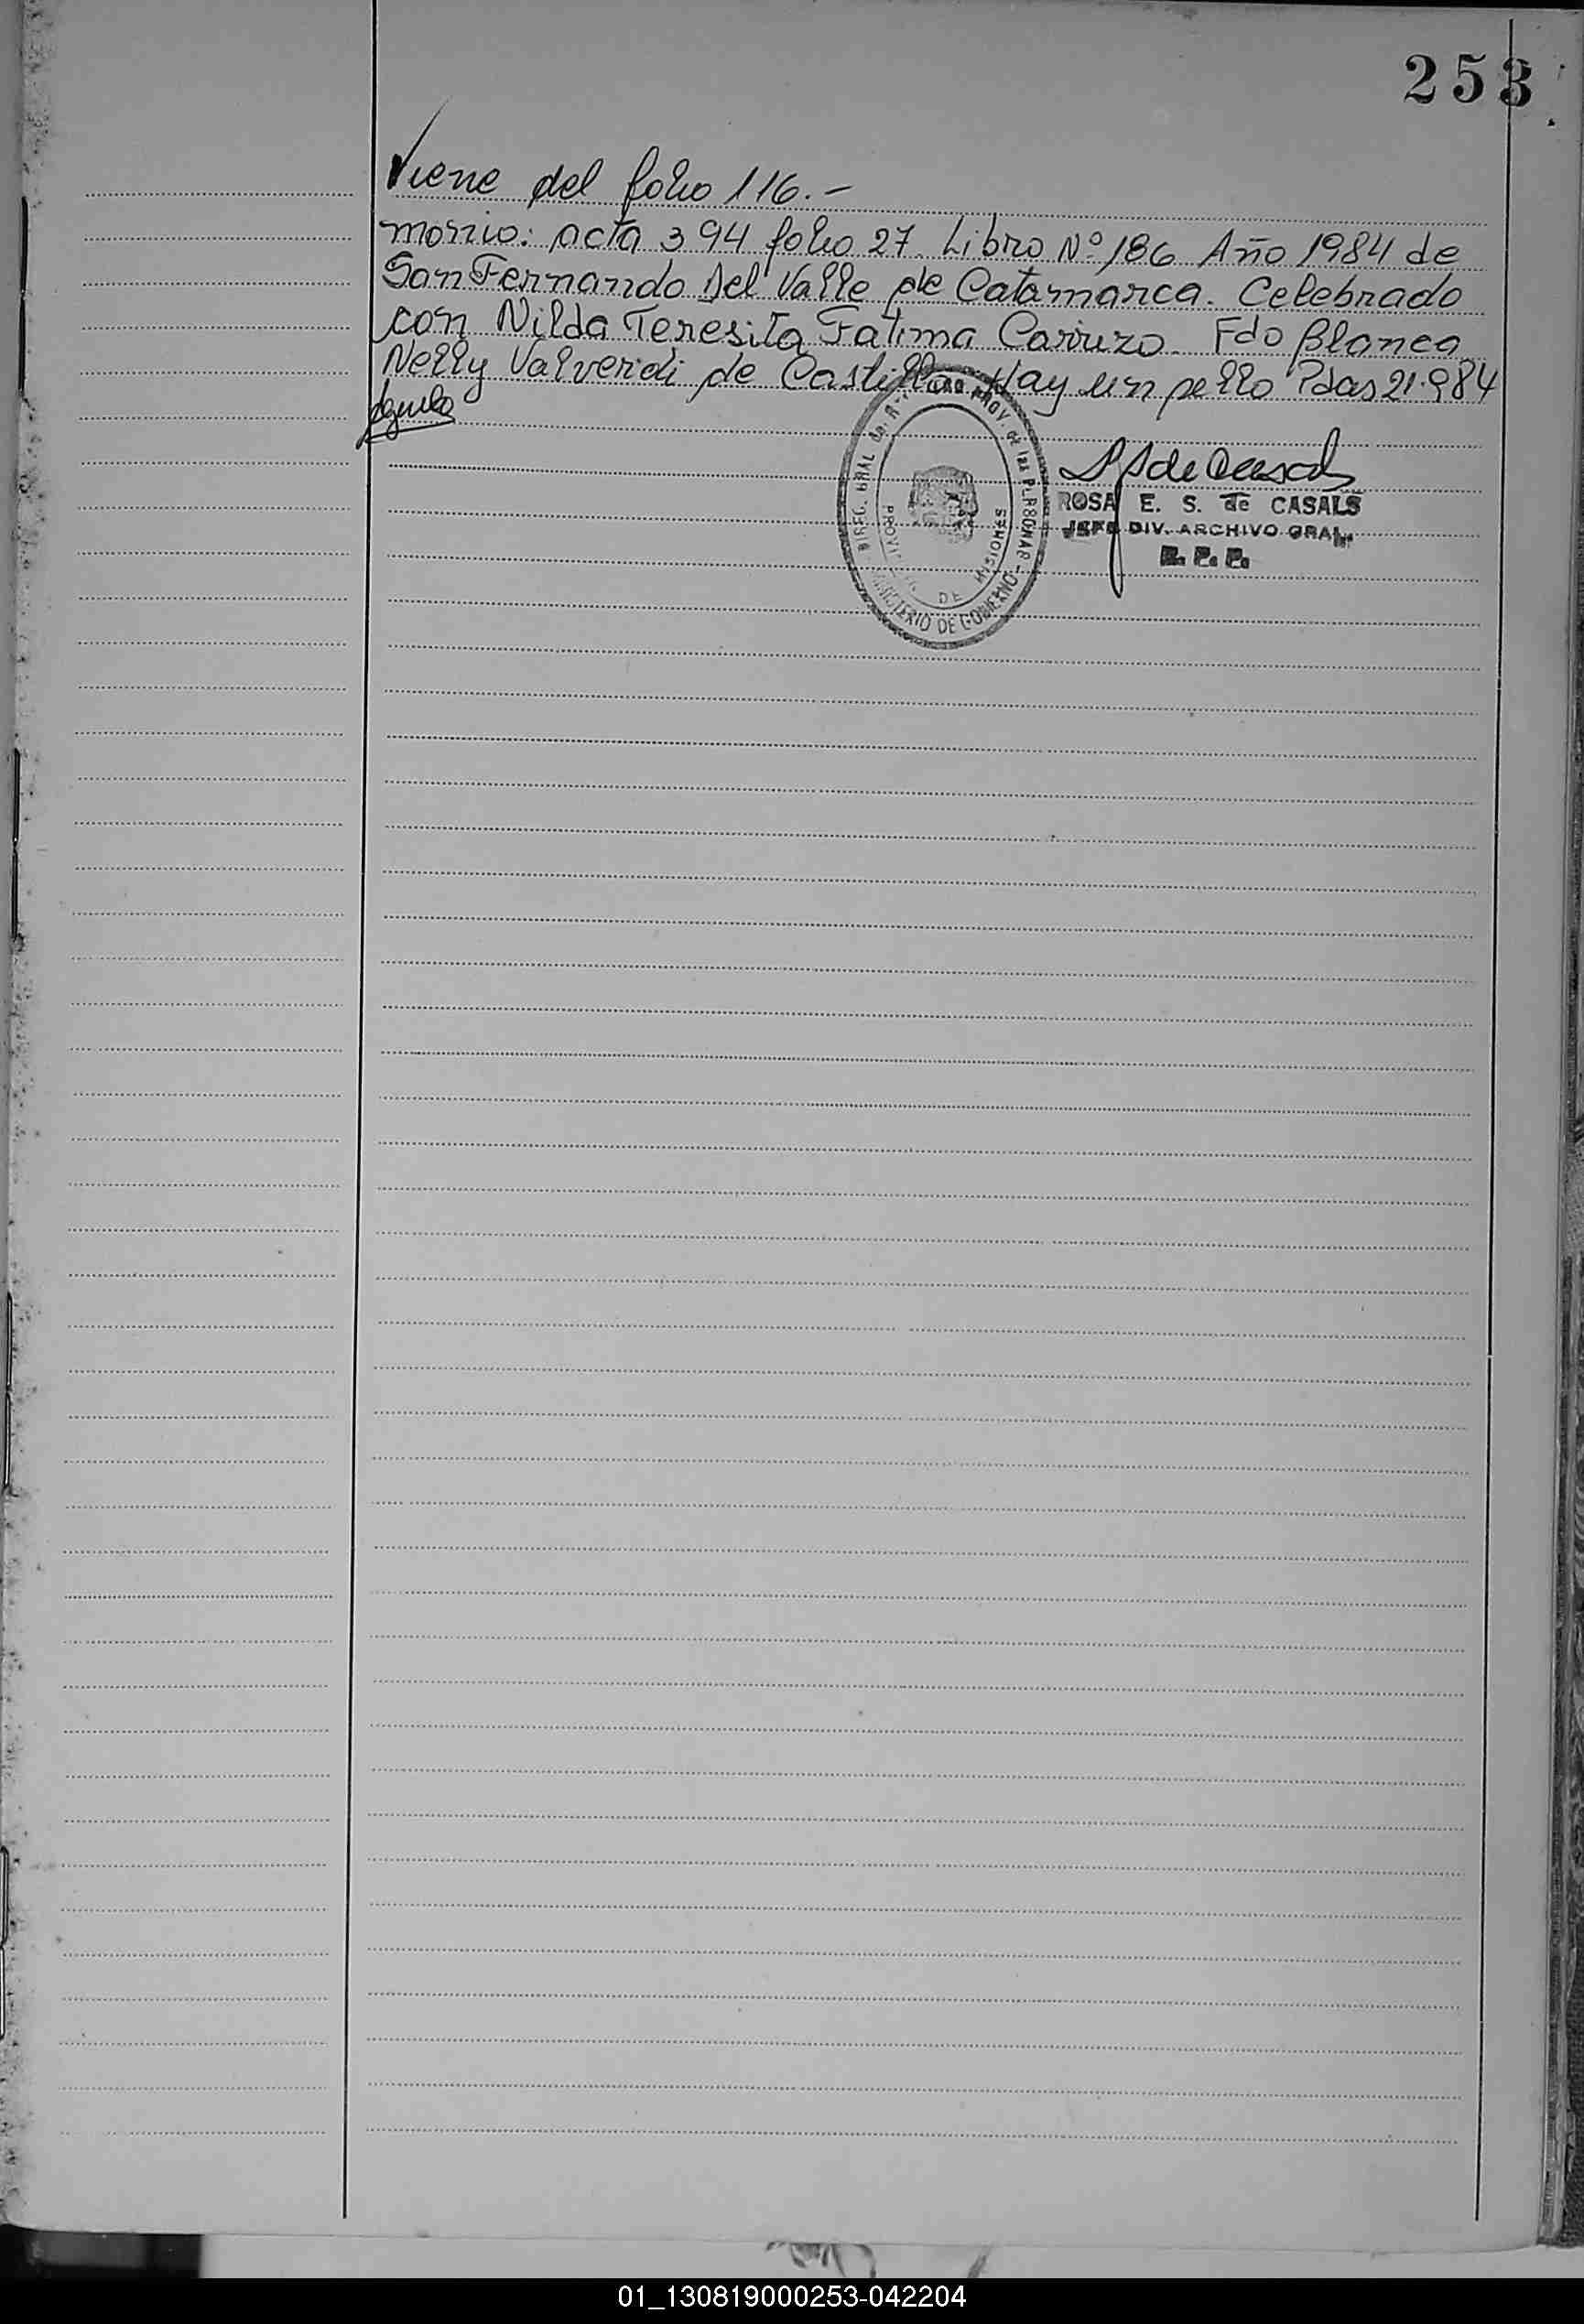 253
Viene del folio 116.-
monio: acta 394 folio 27. Libro Nº 186 Año 1984 de
San Fernando Del Valle de Catamarca. Celebrado
con Nilda Teresita Fatima Carrizo. Fdo Blanca
Nelly Valverdi de Castillo. Hay un sello Pdas 21.984
ROSA E. S. de CASALS
JEFE DIV. ARCHIVO GRAL.
R. P. P.
DIREC. GRAL de R. PROV. de las PERSONAS
PROVINCIA DE MISIONES
MINISTERIO DE GOBIERNO
01_130819000253-042204